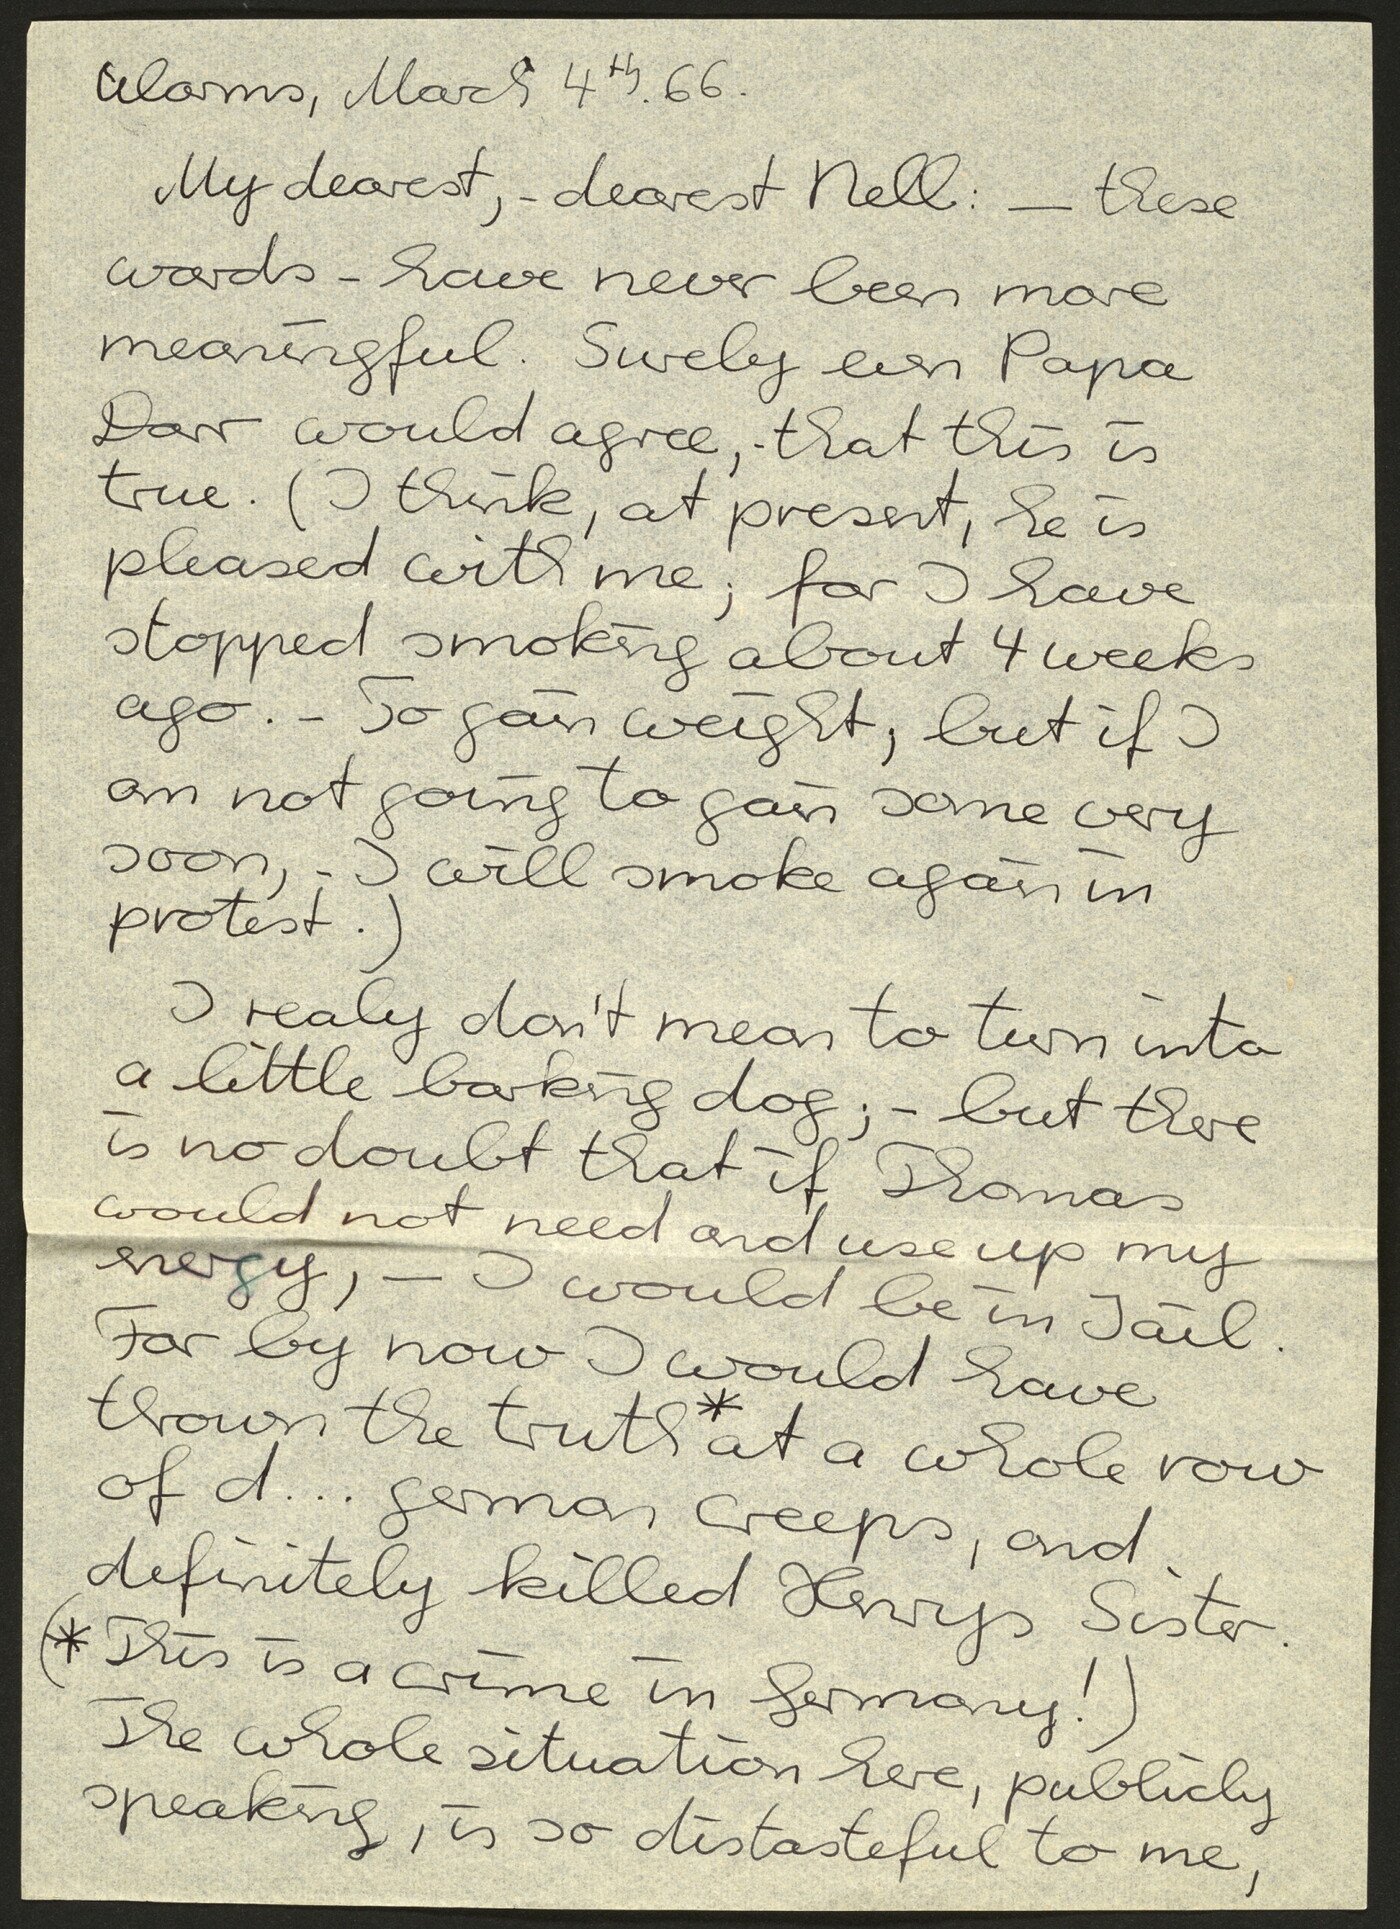 Worms, March 4th. 66.
My dearest, - dearest Nell: — these
words - have never been more
meaningful. Surely even Papa
Darr would agree, - that this is
true. (I think, at present, he is
pleased with me; for I have
stopped smoking about 4 weeks
ago. - To gain weight; but if I
am not going to gain some very
soon, - I will smoke again in
protest.)
I realy don't mean to turn into
a little barking dog; - but there
is no doubt that if Thomas
would not need and use up my
energy, — I would be in Jail.
For by now I would have
thrown the truth* at a whole row
of d... german creeps, and
definitely killed Henrys Sister.
(* This is a crime in Germany!)
The whole situation here, publicly
speaking, is so distasteful to me,